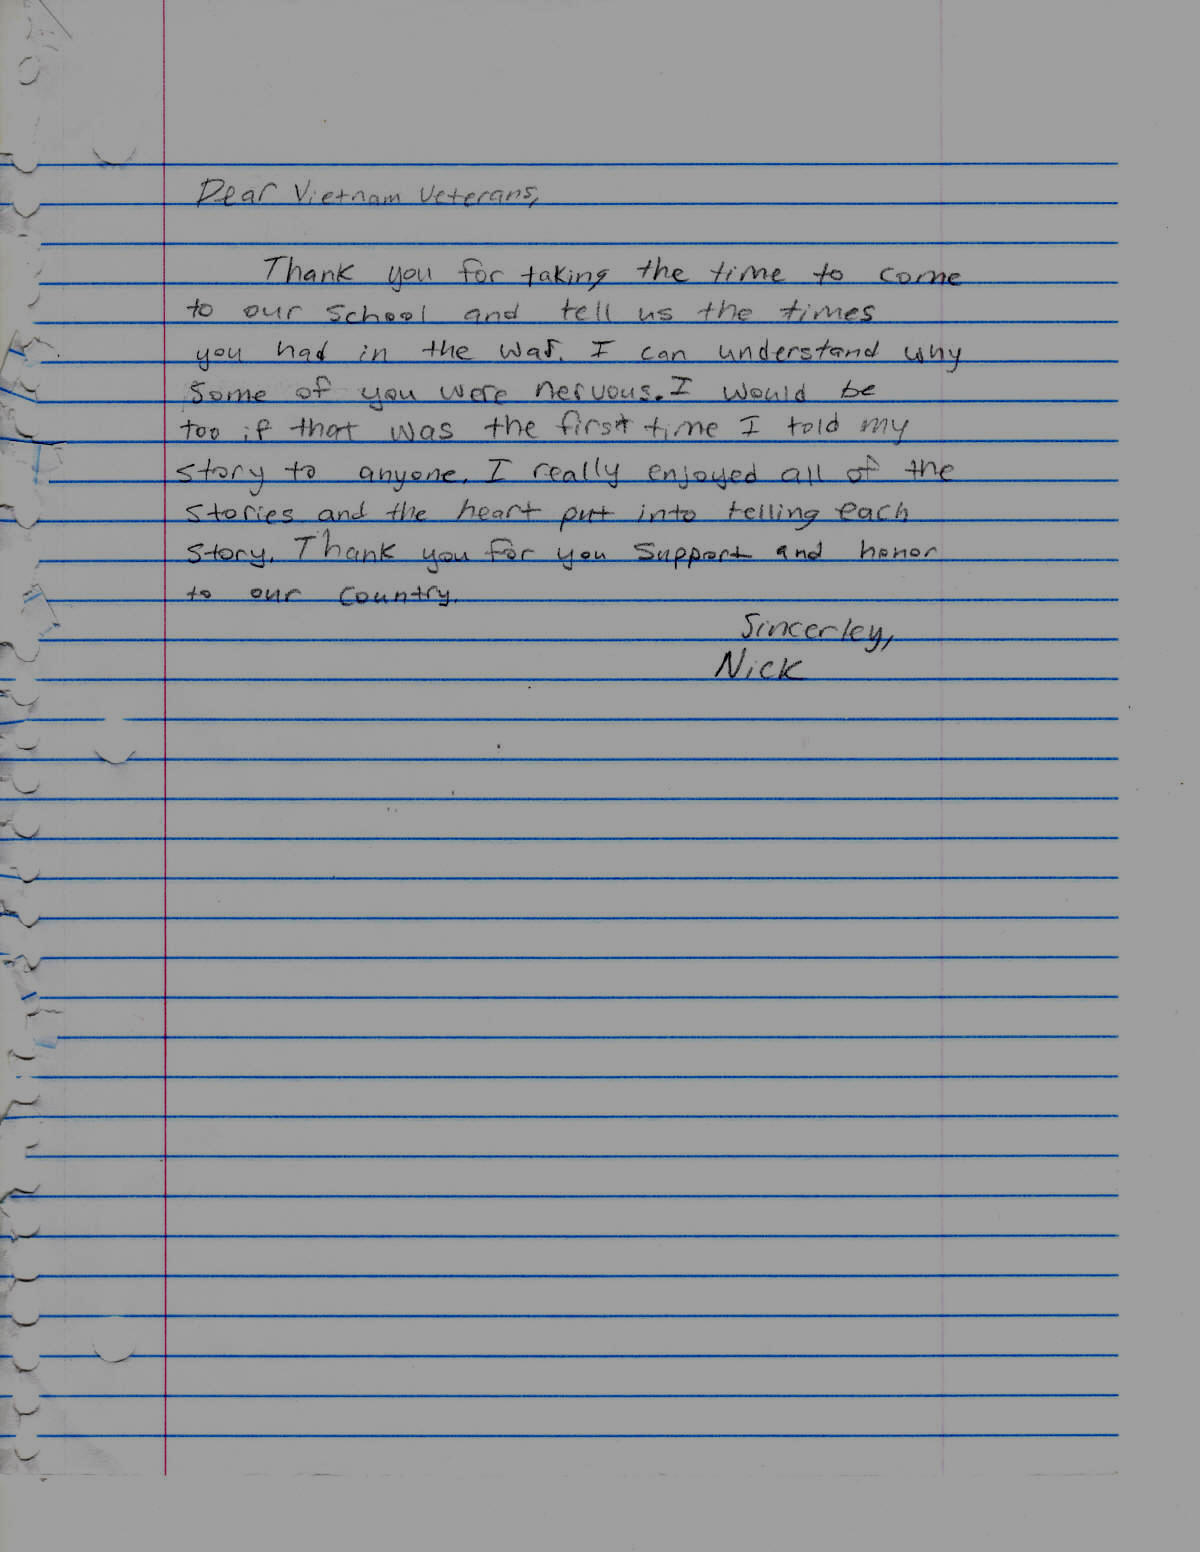 Dear Vietnam Veterans,
Thank you for taking the time to come
to our school and tell us the times
you had in the war. I can understand why
some of you were nervous. I would be
too if that was the first time I told my
story to anyone. I really enjoyed all of the
stories and the heart put into telling each
story. Thank you for you support and honor
to our country.
Sincerley,
Nick